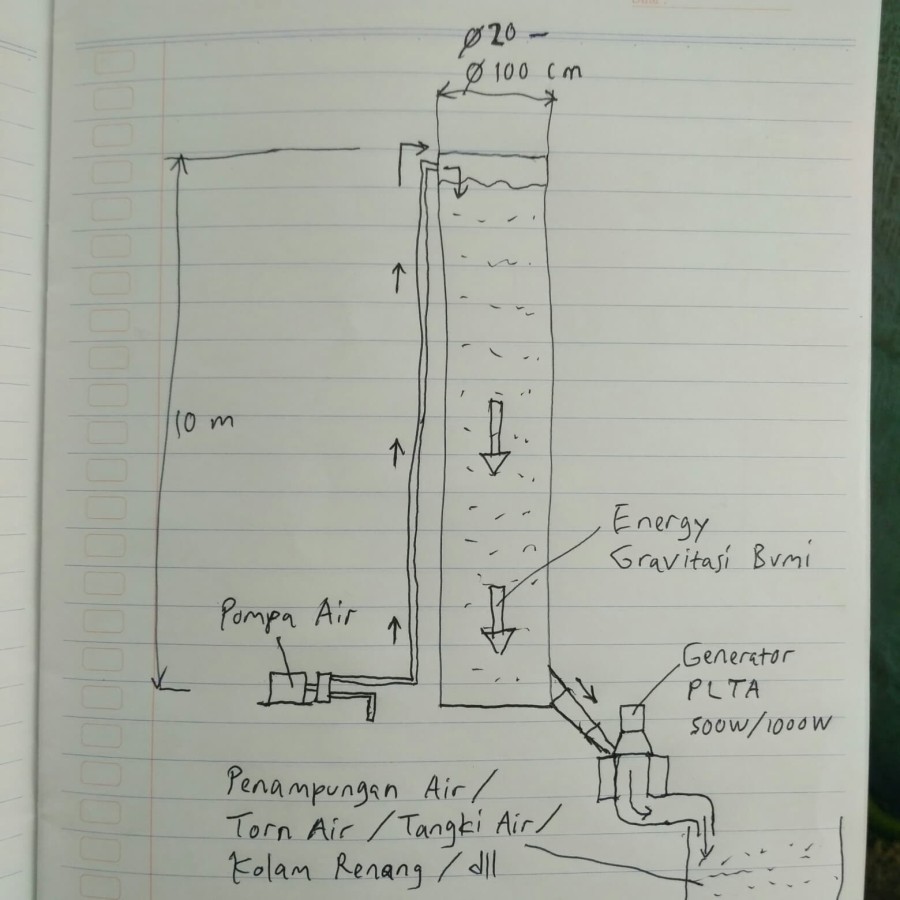 Ø20 –
Ø100 cm
10 m
Energy
Gravitasi Bumi
Pompa Air
Generator
PLTA
500W/1000W
Penampungan Air/
Torn Air / Tangki Air/
Kolam Renang / dll